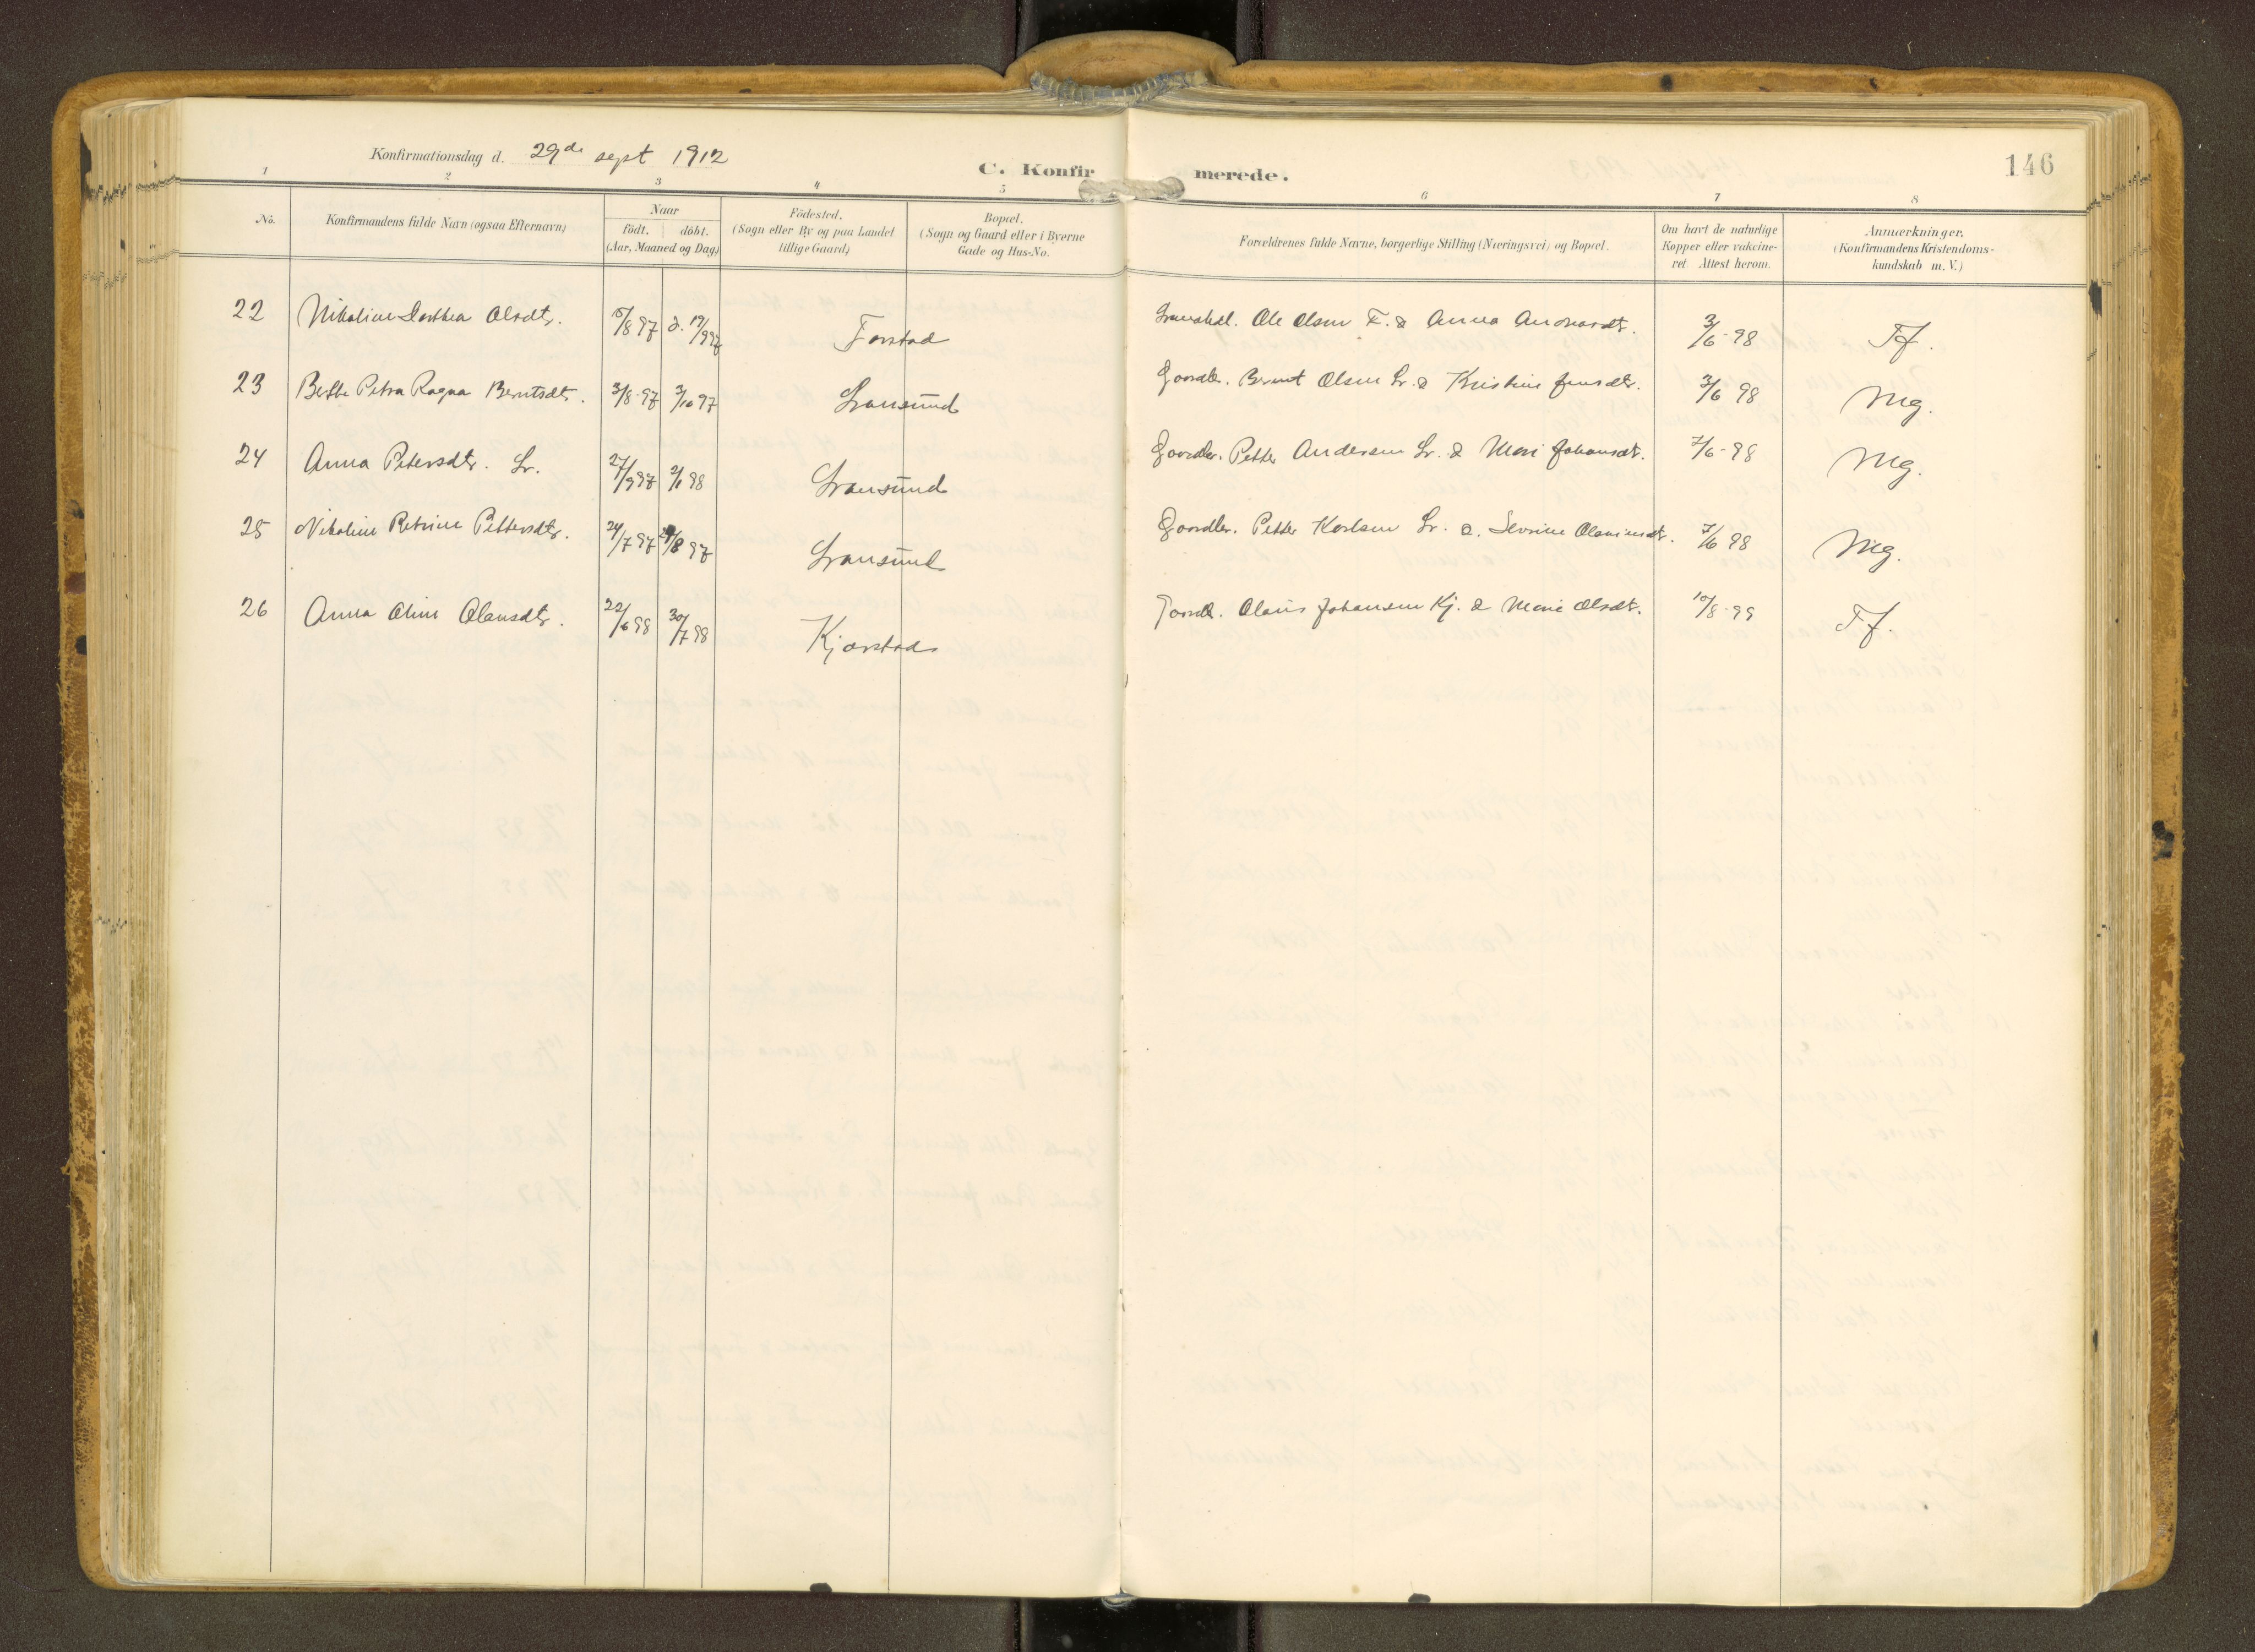 Konfirmationsdag d. 29de sept 1912
C. Konfirmerede.
146
1 2 3 4 5 6 7 8
No.
Konfirmandens fulde Navn (ogsaa Efternavn)
Naar
födt. döbt.
(Aar, Maaned og Dag)
Födested.
(Sogn eller By og paa Landet
tillige Gaard)
Bopæl.
(Sogn og Gaard eller i Byerne
Gade og Hus-No.
Forældrenes fulde Navne, borgerlige Stilling (Næringsvei) og Bopæl.
Om havt de naturlige
Kopper eller vakcine-
ret Attest herom.
Anmærkninger.
(Konfirmandens Kristendoms-
kundskab m. V.)
22 Nikoline Dorthea Olsdtr. 15/8 97 d. 19/9 97 Forstad Ole Olsen F. & Anna 3/6-98 Tf.
23 Berthe Petra Ragna Berntsdtr. 3/8-97 3/10 97 Sransund Gaardbr. Bernt Olsen Sr. & Kristine Jensdtr. 3/6 98 Mg.
24 Anna Petersdtr. Sr. 27/9 97 2/1 98 Sransund Gaardbr. Petter Andersen Sr. & Mari Johansdtr. 7/6-98 Mg.
25 Nikoline Petrine Pettersdtr. 24/7 97 29/8 97 Sransund Gaardbr. Petter Karlsen Sr. & Sevrine 7/6 98 Mg.
26 Anna Oline Olausdtr. 22/6 98 30/7 98 Kjørstad Gaardbr. Olaus Johansen Kj. & Marie Olsdtr. 10/8-99 Tf.